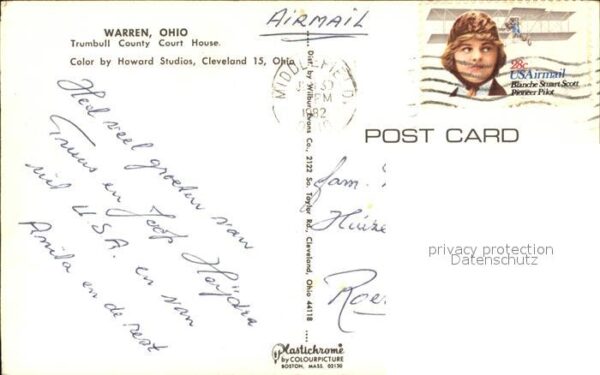 WARREN, OHIO
Trumbull County Court House.
Color by Howard Studios, Cleveland 15, Ohio
AIRMAIL
Heel veel groeten van
Truus en Joop
uit U.S.A. en van
Anita en de rest
Dist. by Wilbur Evans Co., 2122 So. Taylor Rd., Cleveland, Ohio 44118
Plastichrome®
by COLOURPICTURE
BOSTON, MASS. 02130
MIDDLEFIELD,
30
PM
1982
28c
USAirmail
Blanche Stuart Scott
Pioneer Pilot
POST CARD
Fam.
privacy protection
Datenschutz